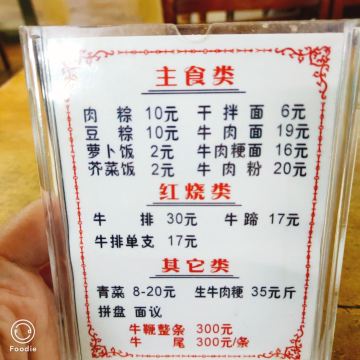 主食类
肉粽 10元 干拌面 6元
豆粽 10元 牛肉面 19元
萝卜饭 2元 牛肉粳面 16元
芥菜饭 2元 牛肉粉 20元
红烧类
牛排 30元 牛蹄 17元
牛排单支 17元
其它类
青菜 8-20元 生牛肉粳 35元斤
拼盘 面议
牛鞭整条 300元
牛尾 300元/条
Foodie